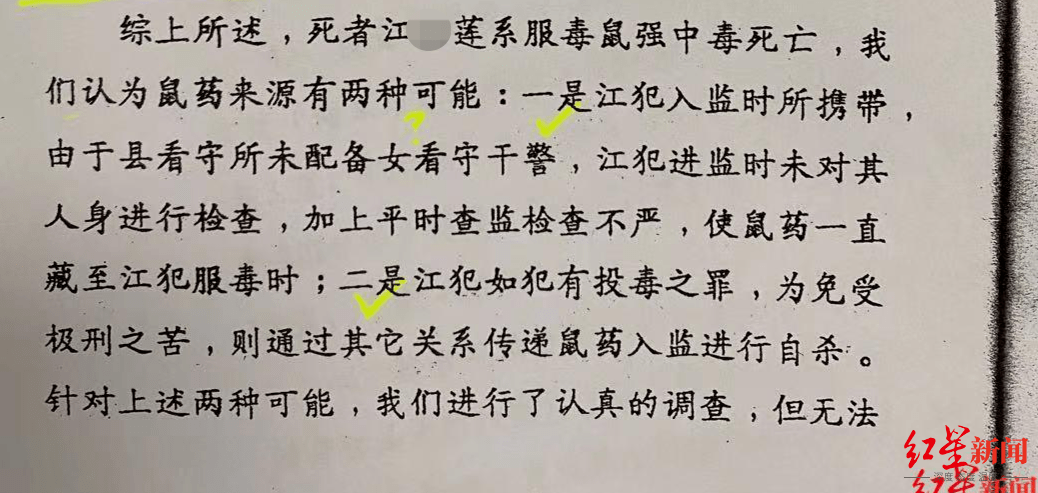 综上所述，死者江 莲系服毒鼠强中毒死亡，我
们认为鼠药来源有两种可能：一是江犯入监时所携带，
由于县看守所未配备女看守干警，江犯进监时未对其
人身进行检查，加上平时查监检查不严，使鼠药一直
藏至江犯服毒时；二是江犯如犯有投毒之罪，为免受
极刑之苦，则通过其它关系传递鼠药入监进行自杀。
针对上述两种可能，我们进行了认真的调查，但无法
?
红星新闻
红星新闻